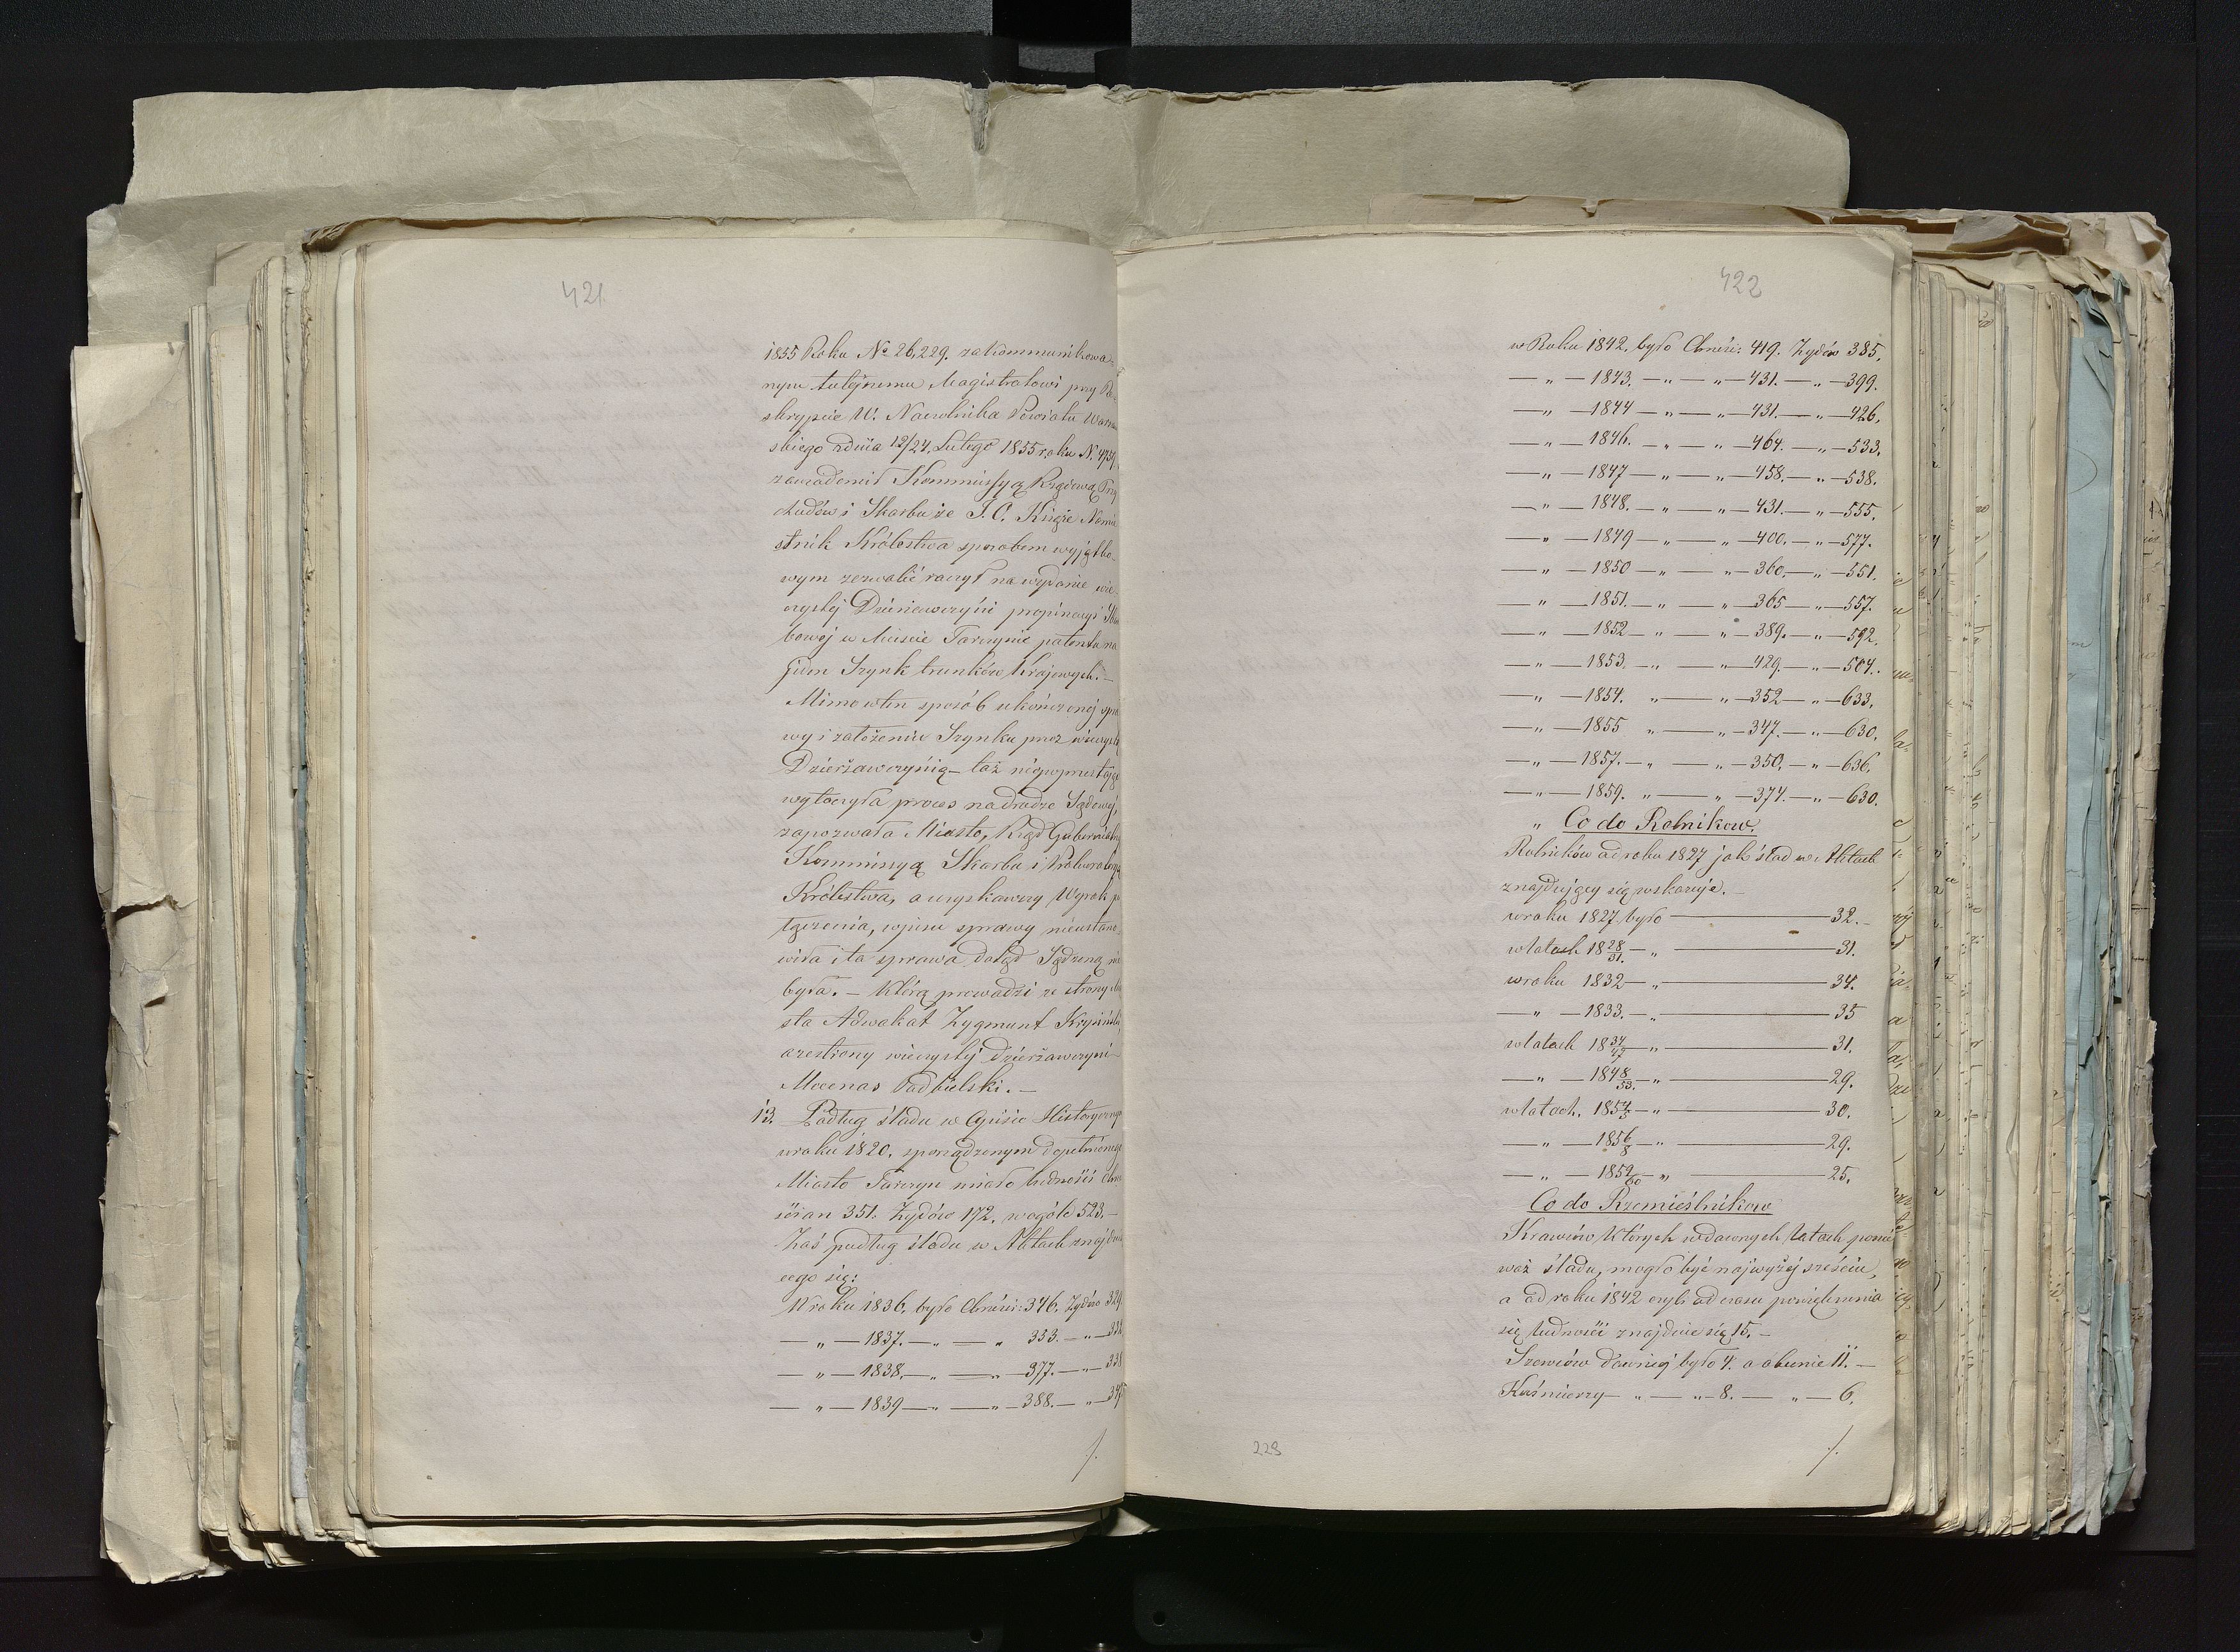 421
1855 Roku No 26,229. zakommunikowa-
nym tutejszemu Magistratowi przy Re-
skrypcie W. Naczelnika Powiatu Warsza
skiego z dnia 12/24. Lutego 1855 roku N.
zawiadomił Kommissyą Rządową Przy
chodów i Skarbu że J. O. Xiąże Namie
stnik Królestwa sposobem wyjątko-
wym zezwolić raczył na wydanie wie-
czystej Dzierżawczyni propinacyi Skar
bowej w Mieście Tarczynie patentu na
jeden Szynk trunków Krajowych.-
Mimo wten sposób ukończonej spra
wy i założenia Szynku przez wieczystą
Dzierżawczynią - taż
wytoczyła proces na drodze Sądowej,
zapozwała Miasto, Rząd Gubernialny
Kommissyą Skarbu i Prokuratoryą
Królestwa, a uzyskawszy Wyrok
łączenia, wpisu sprawy nieustano-
wiła i ta sprawa dotąd Sądzoną nie
była. - Którą prowadzi ze strony Mia
sta Adwokat Zygmunt Krysiński,
a ze strony wieczystej dzierżawczyni -
Mecenas Podbielski. -
13. Podług śladu w Opisie Historycznym
w roku 1820. sporządzonym dopełnionego
Miasto Tarczyn miało ludności Chrze
ścian 351. Żydów 172. w ogóle 523. -
Zaś podług śladu w Aktach znajdują
cego się:
W roku 1836. było Chrześci: 346. Żydów 329
— „ — 1837. — „ — „ 353. — „ —
— „ — 1838. — „ — „ 377. — „ — 338
— „ — 1839 — „ — „ — 388. — „ —
/.
422
w Roku 1842. było Chrześci: 419. Żydów 385.
— „ — 1843. — „ — „ — 431. — „ — 399.
— „ — 1844 — „ — „ — 431. — „ — 426.
— „ — 1846. — „ — „ — 464. — „ — 533.
— „ — 1847 — „ — „ — 458. — „ — 538.
— „ — 1848. — „ — „ — 431. — „ — 555.
— „ — 1849 — „ — „ — 400. — „ — 577.
— „ — 1850 — „ — „ — 360. — „ — 551.
— „ — 1851. — „ — „ — 365 — „ — 557.
— „ — 1852 — „ — „ — 389. — „ — 592.
— „ — 1853. — „ — „ — 429. — „ — 504.
— „ — 1854. „ — „ — 352 — „ — 633.
— „ — 1855 „ — „ — 347. — „ — 630.
— „ — 1857. — „ — „ — 350. — „ — 636.
— „ — 1859. „ — „ — 374. — „ — 630.
„ Co do Rolnikow.
Rolników od roku 1827 jak ślad w Aktach
znajdujący się wskazuje. -
w roku 1827 było — 32. -
w latach 1828/31. — „ — 31.
w roku 1832 — „ — 34.
— „ — 1833. — „ — 35
w latach 1834/47 — „ — 31.
— „ — 1848/53. — „ — 29.
w latach. 1854/5 — „ — 30.
— „ — 1856/8 — „ — 29.
— „ — 1859/60 — „ — 25.
Co do Rzemieślnikow
Krawców których w dawnych latach ponie
waż śladu, mogło być najwyżej sześciu,
a od roku 1842 czyli od czasu powiększenia
się ludności znajduie się 15. -
Szewców dawniej było 4. a obecnie 11. -
Kuśnierzy — „ — „ — 8. — „ — 6.
/.
228